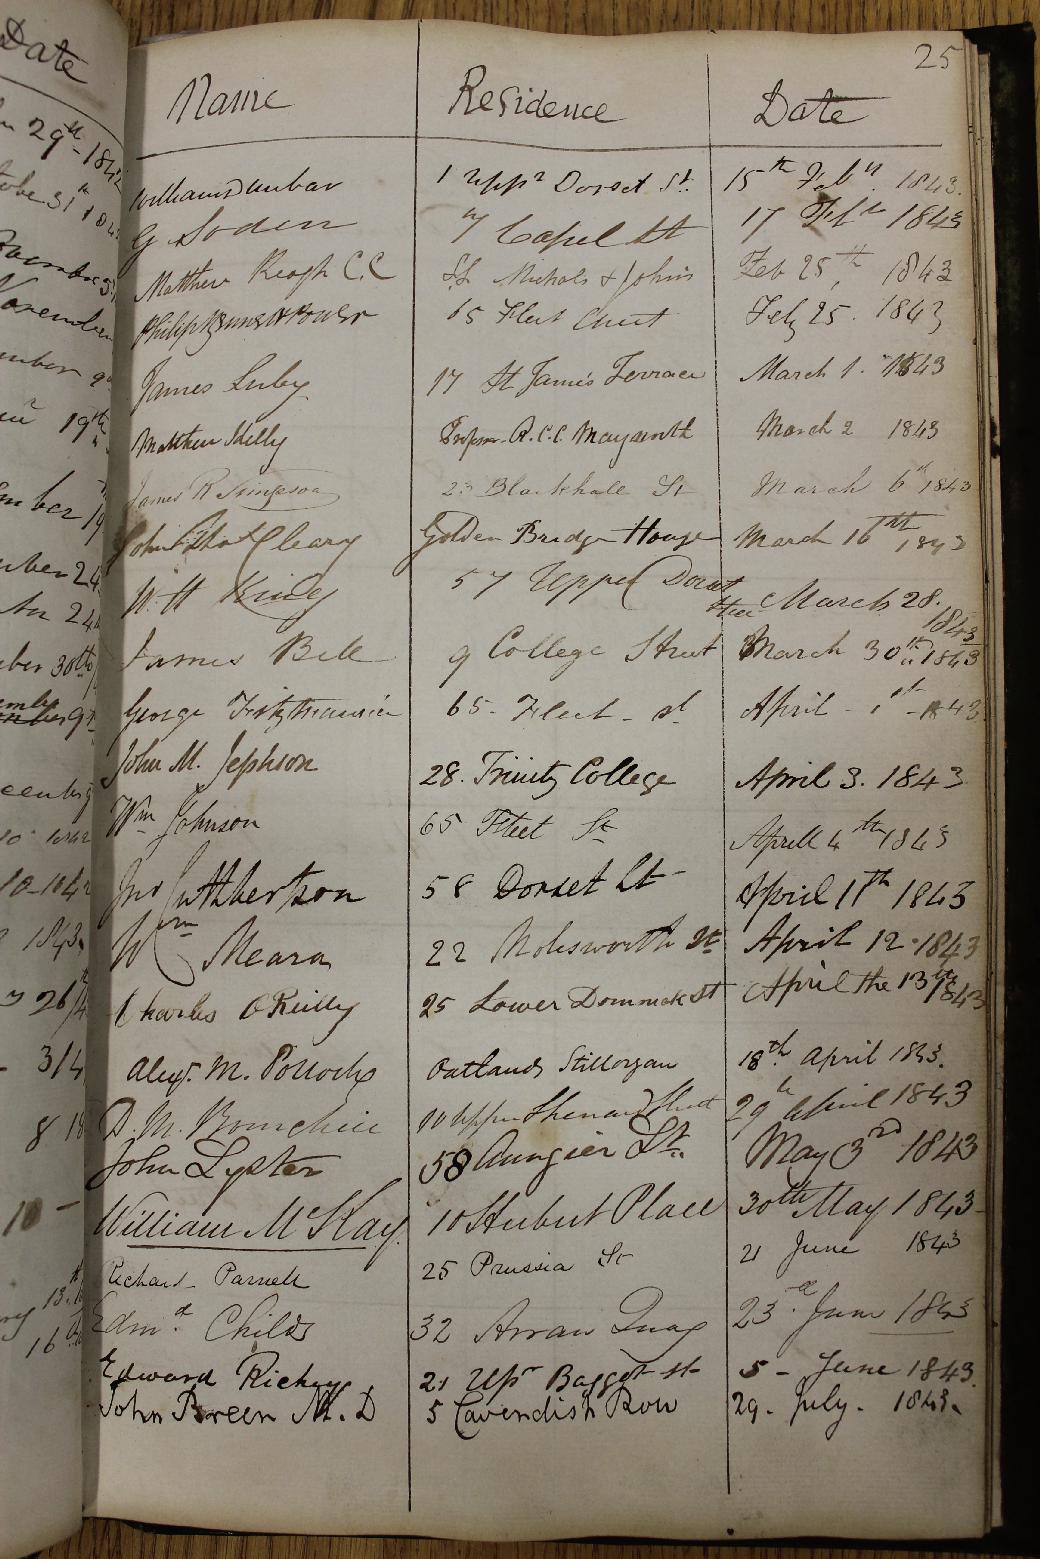 25
Name Residence Date
William Dunbar 1 Uppr Dorset St. 15th Feby. 1843.
G Soden 7 Capel St 17 1843
Matthew Keogh C.C St. Nichols & John's Feb 25th, 1843
Philip 65 Fleet Street Feby 25. 1843
James Luby 17 St James's Terrace March 1. 1843
Matthew Kelly Profssr. R.C.C. Maynooth March 2 1843
James R Simpson 23 Blackhall St March 6th 1843
John Cleary Golden Bridge House March 16th, 1843
W. H 57 Upper Dorset
March 28. 1843
James Bell 9 College Street March 30th 1843
George Fitzmaurice 65. Fleet - st April - 1st - 1843
John M. Jephson 28. Trinity College April 3. 1843
Wm Johnson 65 Fleet St Aprill 4th 1843
Jno Cuthbertson 58 Dorset St April 11th 1843
Wm Meara 22 Molesworth St April 12. 1843
Charles O'Reilly 25 Lower Dominick St April the 13th 1843
Alexr. M. Pollock Oatlands Stillorgan 18th. April 1843.
D. M. 10 Upper Street 29th April 1843
John Lyster 58 Aungier St. May 3rd 1843
William McKay. 10 Herbert Place 30th May 1843-
Richard Parnell 25 Prussia St 21 June 1843
Edmd. Childs 32 Arran Quay 23rd June 1843
Edward Richey 21 Upr Baggot st 5 - June 1843.
John Breen M.D 5 Cavendish Row 29. July. 1843.